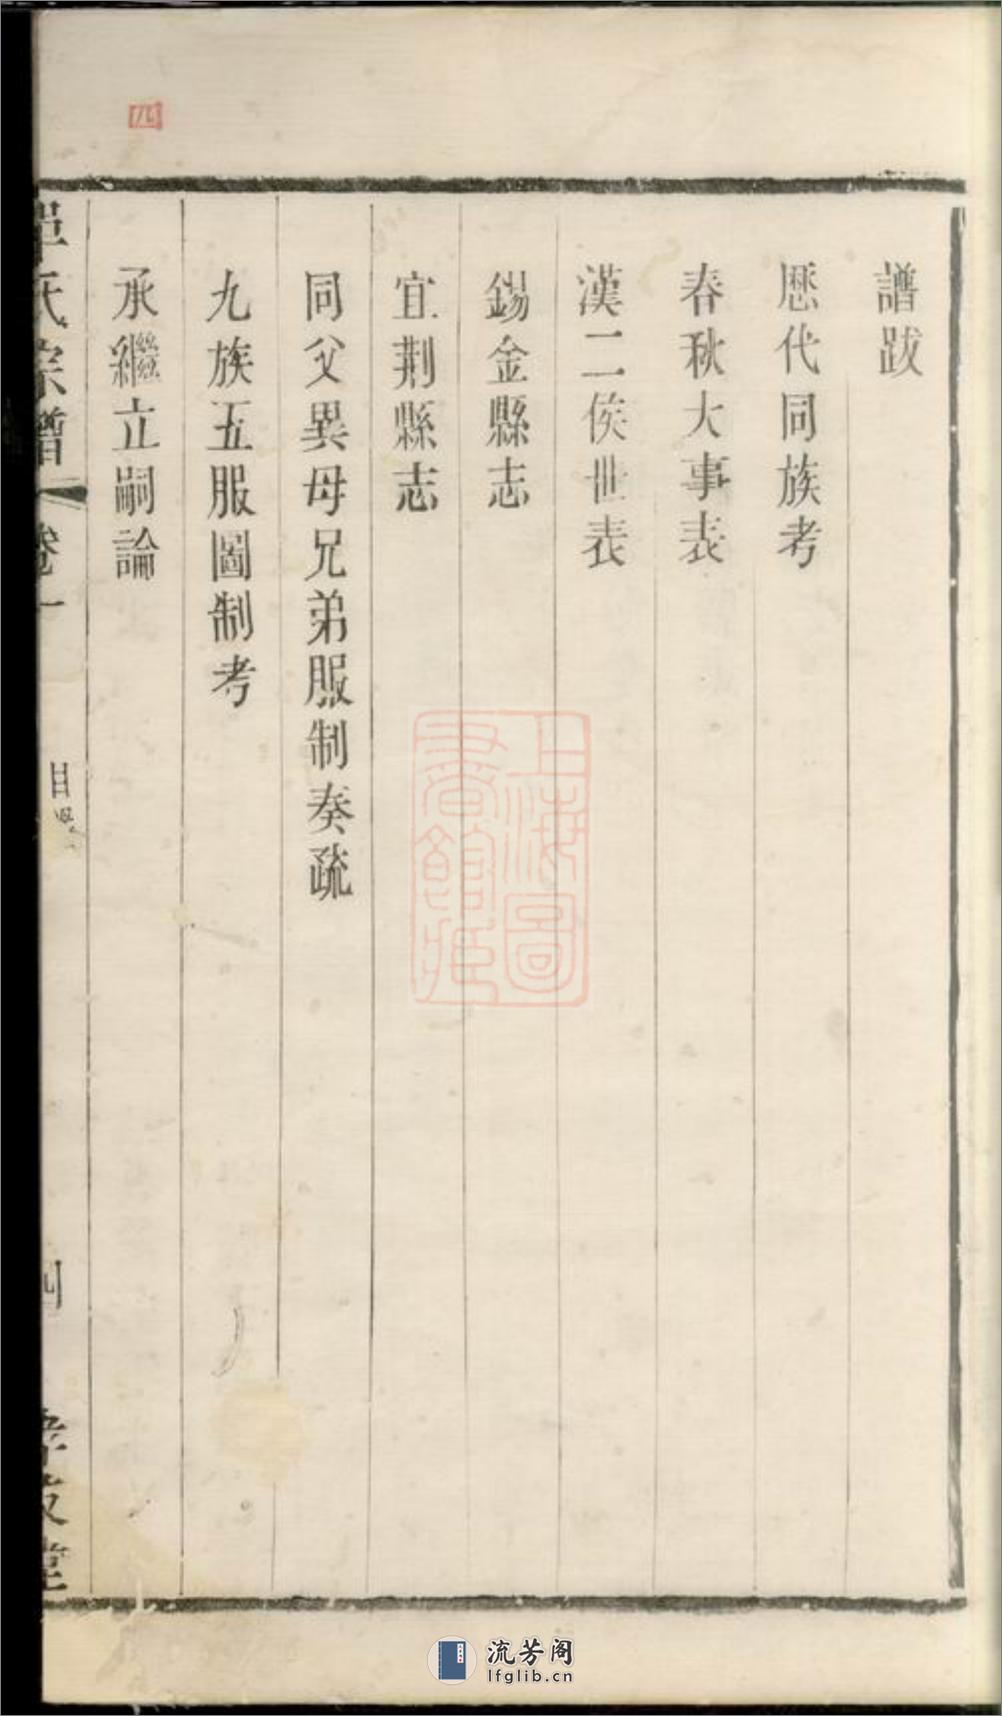 譜跋
歷代同族考
春秋大事表
漢二侯世表
錫金縣志
宜荆縣志
同父異母兄弟服制奏疏
九族五服圖制考
承繼立嗣論
氏宗譜 卷一
目
四
孝友堂
上海圖書館藏
流芳阁
lfglib.cn